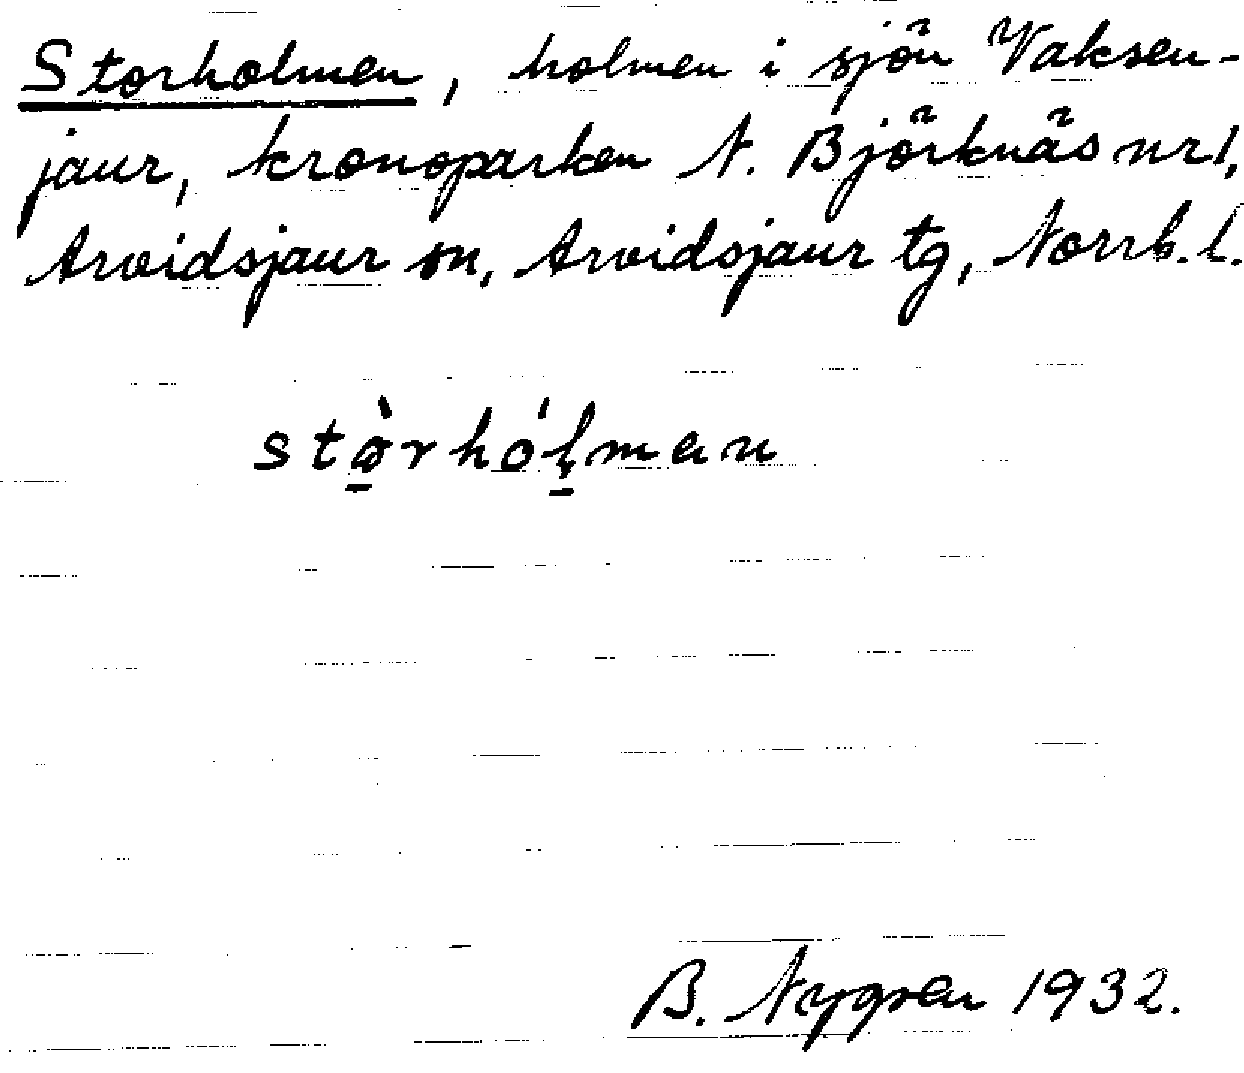 Storholmen, holmen i sjön Vaksen-
jaur, kronoparken N. Björknäs nr 1,
Arvidsjaur sn, Arvidsjaur tg, Norrb. l.
stò̱rhóḻman
B. Nygren 1932.